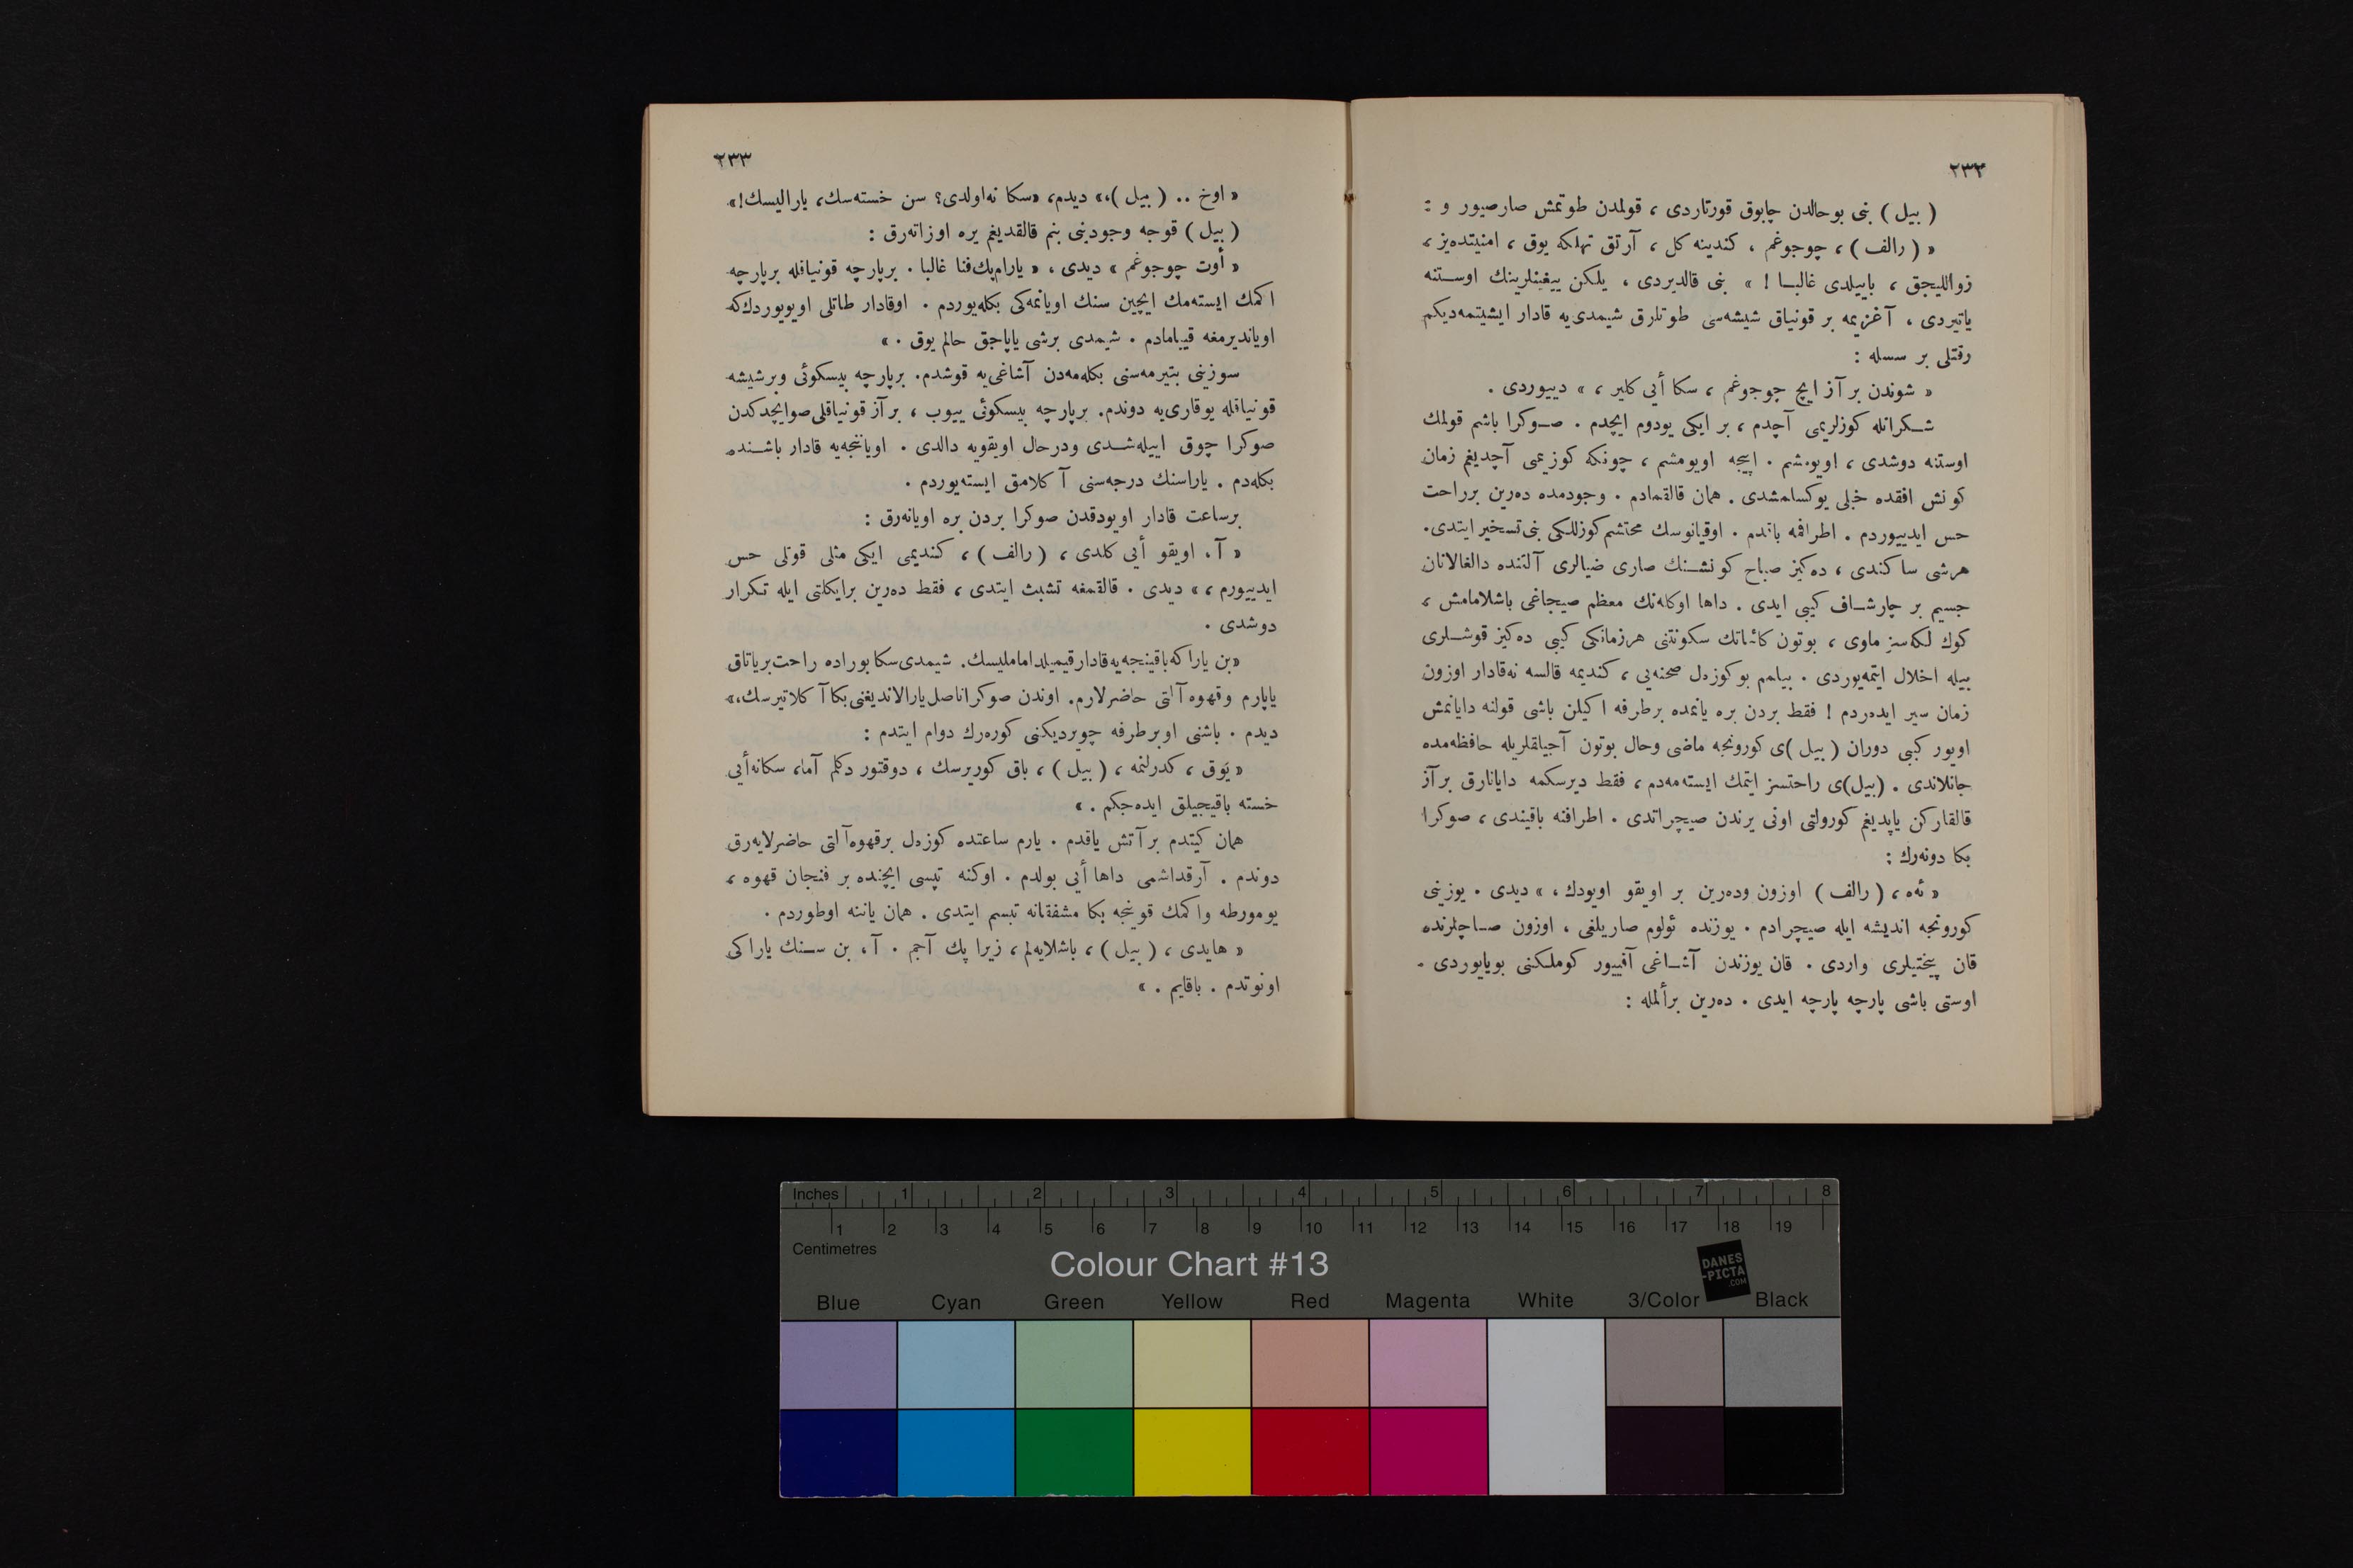 ٢٣٢
( بيل ) بنى بوحالدن چابوق قورتاردى ، قولمدن طوتمش صارصيور و :
« ( رالف ) ، چوجوغم ، كندينه كل ، آرتق تهلكه يوق ، امنيتده‌يز ،
زواللیجق ، باييلدى غالبـا ! » بنى قالديردى ، يلكن ييغينلرينك اوسـتنه
ياتيردى ، آغزيمه بر قونياق شيشه‌سى طوتارق شيمدى‌يه قادار ايشيتمه‌ديكم
رقتلى بر سسله :
« شوندن بر آز ايچ چوجوغم ، سكا أيى كلير ، » دييوردى .
شـكرانله كوزلريمى آچدم ، بر ايكى يودوم ايچدم . صـوكرا باشم قولمك
اوستنه دوشدى ، اويومشم . اييجه اويومشم ، چونكه كوزيمى آچديغم زمان
كونش افقده خيلى يوكسلمشدى . همان قالقمادم . وجودمده ده‌رين برراحت
حس ايدييوردم . اطرافمه باقدم . اوقيانوسك محتشم كوزللكى بنى تسخير ايتدى.
هرشى ساكندى ، ده‌كيز صباح كونشـنك صارى ضيالرى آلتنده دالغالانان
جسيم بر چارشـاف كيبى ايدى . داها اوكله‌نك معظم صيجاغى باشلامامش ،
كوك لكه‌سز ماوى ، بوتون كائناتك سكونتنى هرزمانكى كيبى ده‌كيز قوشـلرى
بيله اخلال ايتمه‌يوردى . بيلمم بوكوزل صحنه‌يى ، كنديمه قالسه نه‌قادار اوزون
زمان سير ايده‌ردم ! فقط بردن بره يانمده برطرفه اكيلن باشى قولنه دايانمش
اويور كيبى دوران ( بيل )ى كورونجه ماضى وحال بوتون آجيلقلريله حافظه‌مده
جانلاندى . (بيل)ى راحتسز ايتمك ايسته‌مه‌دم ، فقط ديرسكمه دايانارق برآز
قالقاركن ياپديغم كورولتى اونى يرندن صيچراتدى . اطرافنه باقيندى ، صوكرا
بكا دونه‌رك :
« ئه‌ه ، ( رالف ) اوزون وده‌رين بر اويقو اويودك ، » ديدى . يوزينى
كورونجه انديشه ايله صيچرادم . يوزنده ئولوم صاريلغى ، اوزون صـاچلرنده
قان پيختيلرى واردى . قان يوزندن آشـاغى آقييور كوملكنى بوياىوردى .
اوستى باشى پارچه پارچه ايدى . ده‌رين برألمله :
٢٣٣
« اوخ .. ( بيل )،» ديدم، «سكا نه‌اولدى؟ سن خسته‌سك، ياراليسك!»
( بيل ) قوجه وجودينى بنم قالقديغم يره اوزاته‌رق :
« أوت چوجوغم » ديدى ، « يارام‌پك‌فنا غالبا . برپارچه قونياقله برپارچه
اكمك ايسته‌مك ايچين سنك اويانمه‌كى بكله‌يوردم . اوقادار طاتلى اويويوردك‌كه
اويانديرمغه قييامادم . شيمدى برشى ياپاجق حالم يوق . »
سوزينى بتيرمه‌سنى بكله‌مه‌دن آشاغى‌يه قوشدم. برپارچه بيسكوئى وبرشيشه
قونياقله يوقارى‌يه دوندم. برپارچه بيسكوئى ييوب ، برآز قونياقلى‌صوايچدكدن
صوكرا چوق اييله‌شـدى ودرحال اويقويه دالدى . اويانجه‌يه قادار باشـنده
بكله‌دم . ياراسنك درجه‌سنى آكلامق ايسته‌يوردم .
برساعت قادار اويودقدن صوكرا بردن بره اويانه‌رق :
« آ، اويقو أيى كلدى ، ( رالف ) ، كنديمى ايكى مثلى قوتلى حس
ايدييورم ، » ديدى . قالقمغه تشبث ايتدى ، فقط ده‌رين برايكلتى ايله تكرار
دوشدى .
«بن ياراكه‌باقينجه‌يه‌قادارقيميلدامامليسك. شيمدى‌سكابوراده راحت‌برياتاق
ياپارم وقهوه‌آلتى حاضرلارم. اوندن صوكراناصل‌يارالانديغنى‌بكاآكلاتيرسك،»
ديدم . باشنى اوبرطرفه چويرديكنى كوره‌رك دوام ايتدم :
« يوق ، كدرلنمه ، ( بيل ) ، باق كوريرسك ، دوقتور دكلم آما، سكانه‌أيى
خسته باقيجيلق ايده‌جكم . »
همان كيتدم برآتش ياقدم . يارم ساعتده كوزل برقهوه‌آلتى حاضرلايه‌رق
دوندم . آرقداشمى داها أيى بولدم . اوكنه تپسى ايچنده بر فنجان قهوه ،
يومورطه واكمك قوينجه بكا مشفقانه تبسم ايتدى . همان ياننه اوطوردم .
« هايدى ، ( بيل ) ، باشلايه‌لم ، زيرا پك آجم . آ ، بن سـنك ياراكى
اونوتدم . باقايم . »
Inches 1 2 3 4 5 6 7 8
1 2 3 4 5 6 7 8 9 10 11 12 13 14 15 16 17 18 19
Centimetres
Colour Chart #13
DANES
-PICTA
.COM
Blue Cyan Green Yellow Red Magenta White 3/Color Black